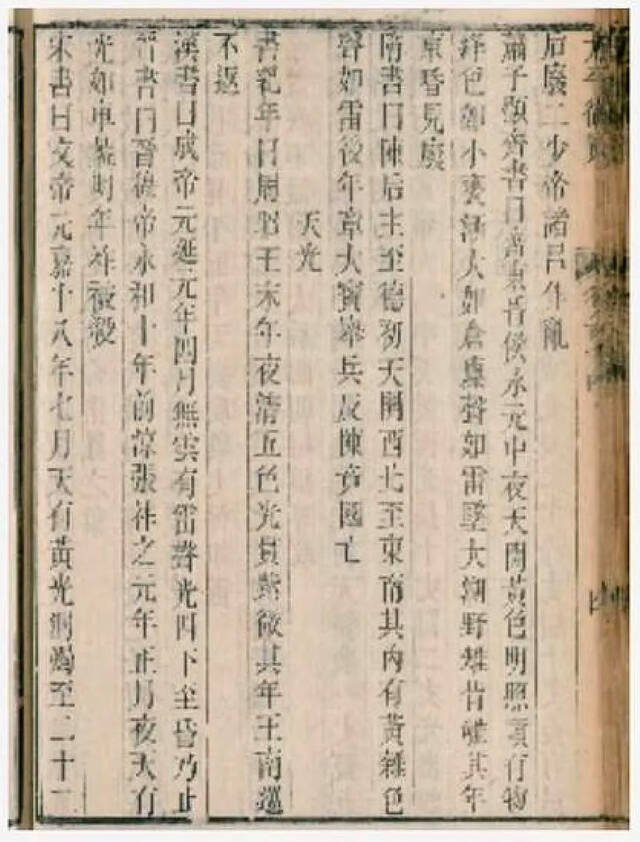 后廢二少帝諸呂作亂
蕭子顯齊書曰齊東昏侯永元中夜天開黃色明照須有物
絳色如小甕漸大如倉廩聲如雷墜太湖野雉皆雊其年
東昏見廢
隋書曰陳后主至德初天開西北至東南其內有黃雜色
聲如雷後年章大寶舉兵反陳竟國亡
天光
書紀年曰周昭王末年夜清五色光貫紫微其年王南巡
不返
漢書曰成帝元延元年四月無雲有雷聲光四下至昏乃止
晉書曰晉穆帝永和十年前涼張祚之元年正月夜天有
光如車蓋明年祚被殺
宋書曰文帝元嘉十八年七月天有黃光洞燭至二十二